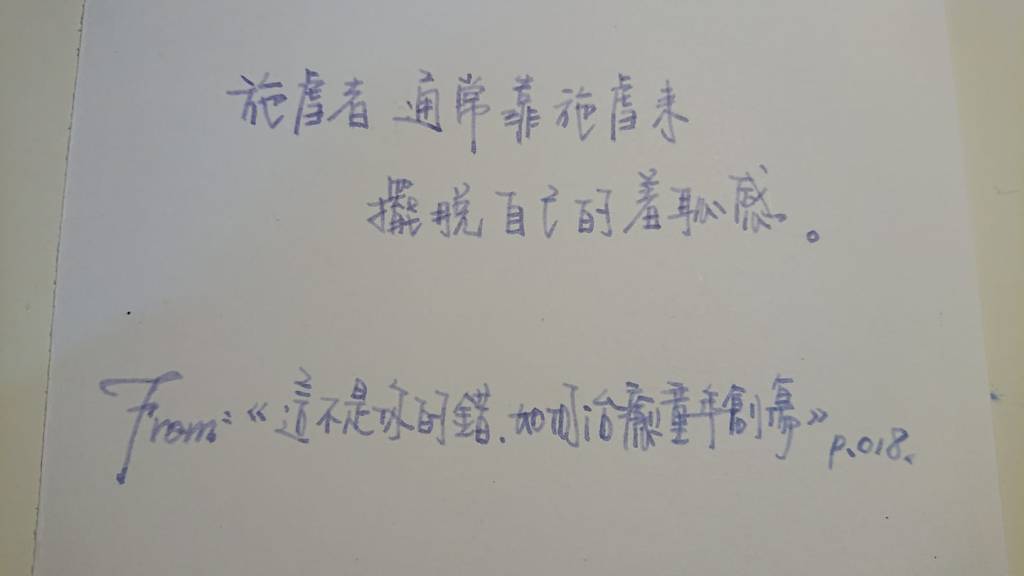 施虐者 通常靠施虐來
擺脱自己的羞恥感。
From:《這不是你的錯.如何治癒童年創傷》p.018.